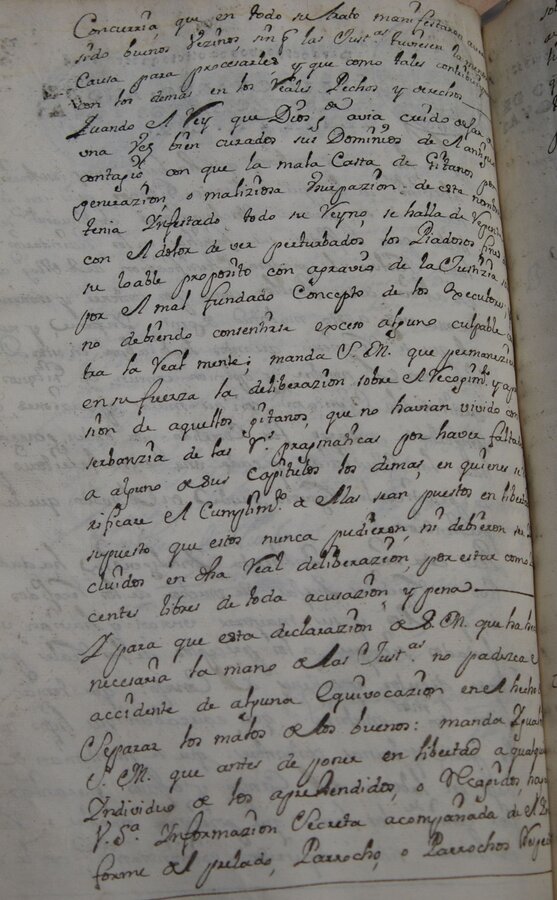 Concurria que en todo su trato manifestaron aver
sido buenos Vezinos sin q̃ las Just.as tuviesen la menor
Causa para procesarles, y que como tales contribuyen
con los demas en los Reales Pechos y derechos
Quando el Rey que Dios g.de avia creido dejar de
una vez bien curados sus Dominios de el antiguo
contagio con que la mala Casta de Gitanos por
generazion, o maliziosa usurpazion de este nombre
tenia Infestado todo su Reyno, se halla de
con el dolor de ver perturbados los Piadosos fines de
su loable proposito con agravio de la Justizia
por el mal fundado Concepto de los Executores,
no debiendo consentirse exceso alguno culpable con
tra la Real mente; manda S. M. que permanezca
en su fuerza la deliberazion sobre el recogim.to y apren
sion de aquellos gitanos, que no havian vivido con
serbanzia de las R.s pragmaticas por haver faltado
a alguno de sus Capitulos los demas, en quienes se
rificare el Cumplim.to de ellas sean puestos en libertad
supuesto que estos nunca pudieron, ni debieron ser In
cluidos en dha Real deliberazion, por estar como Ino
centes libres de toda acusazion, y pena
Y para que esta declarazion de S. M. que ha hecho
necesaria la mano de las Just.as no padezca el
accidente de alguna Equivocazion en el hecho
Separar los malos de los buenos: manda Igualm
S. M. que antes de poner en libertad a qualquier
Individuo de los aprehendidos, o recogidos haga
V. S.a Informazion Secreta acompañada de el In
forme del prelado, Parrocho, o Parrochos